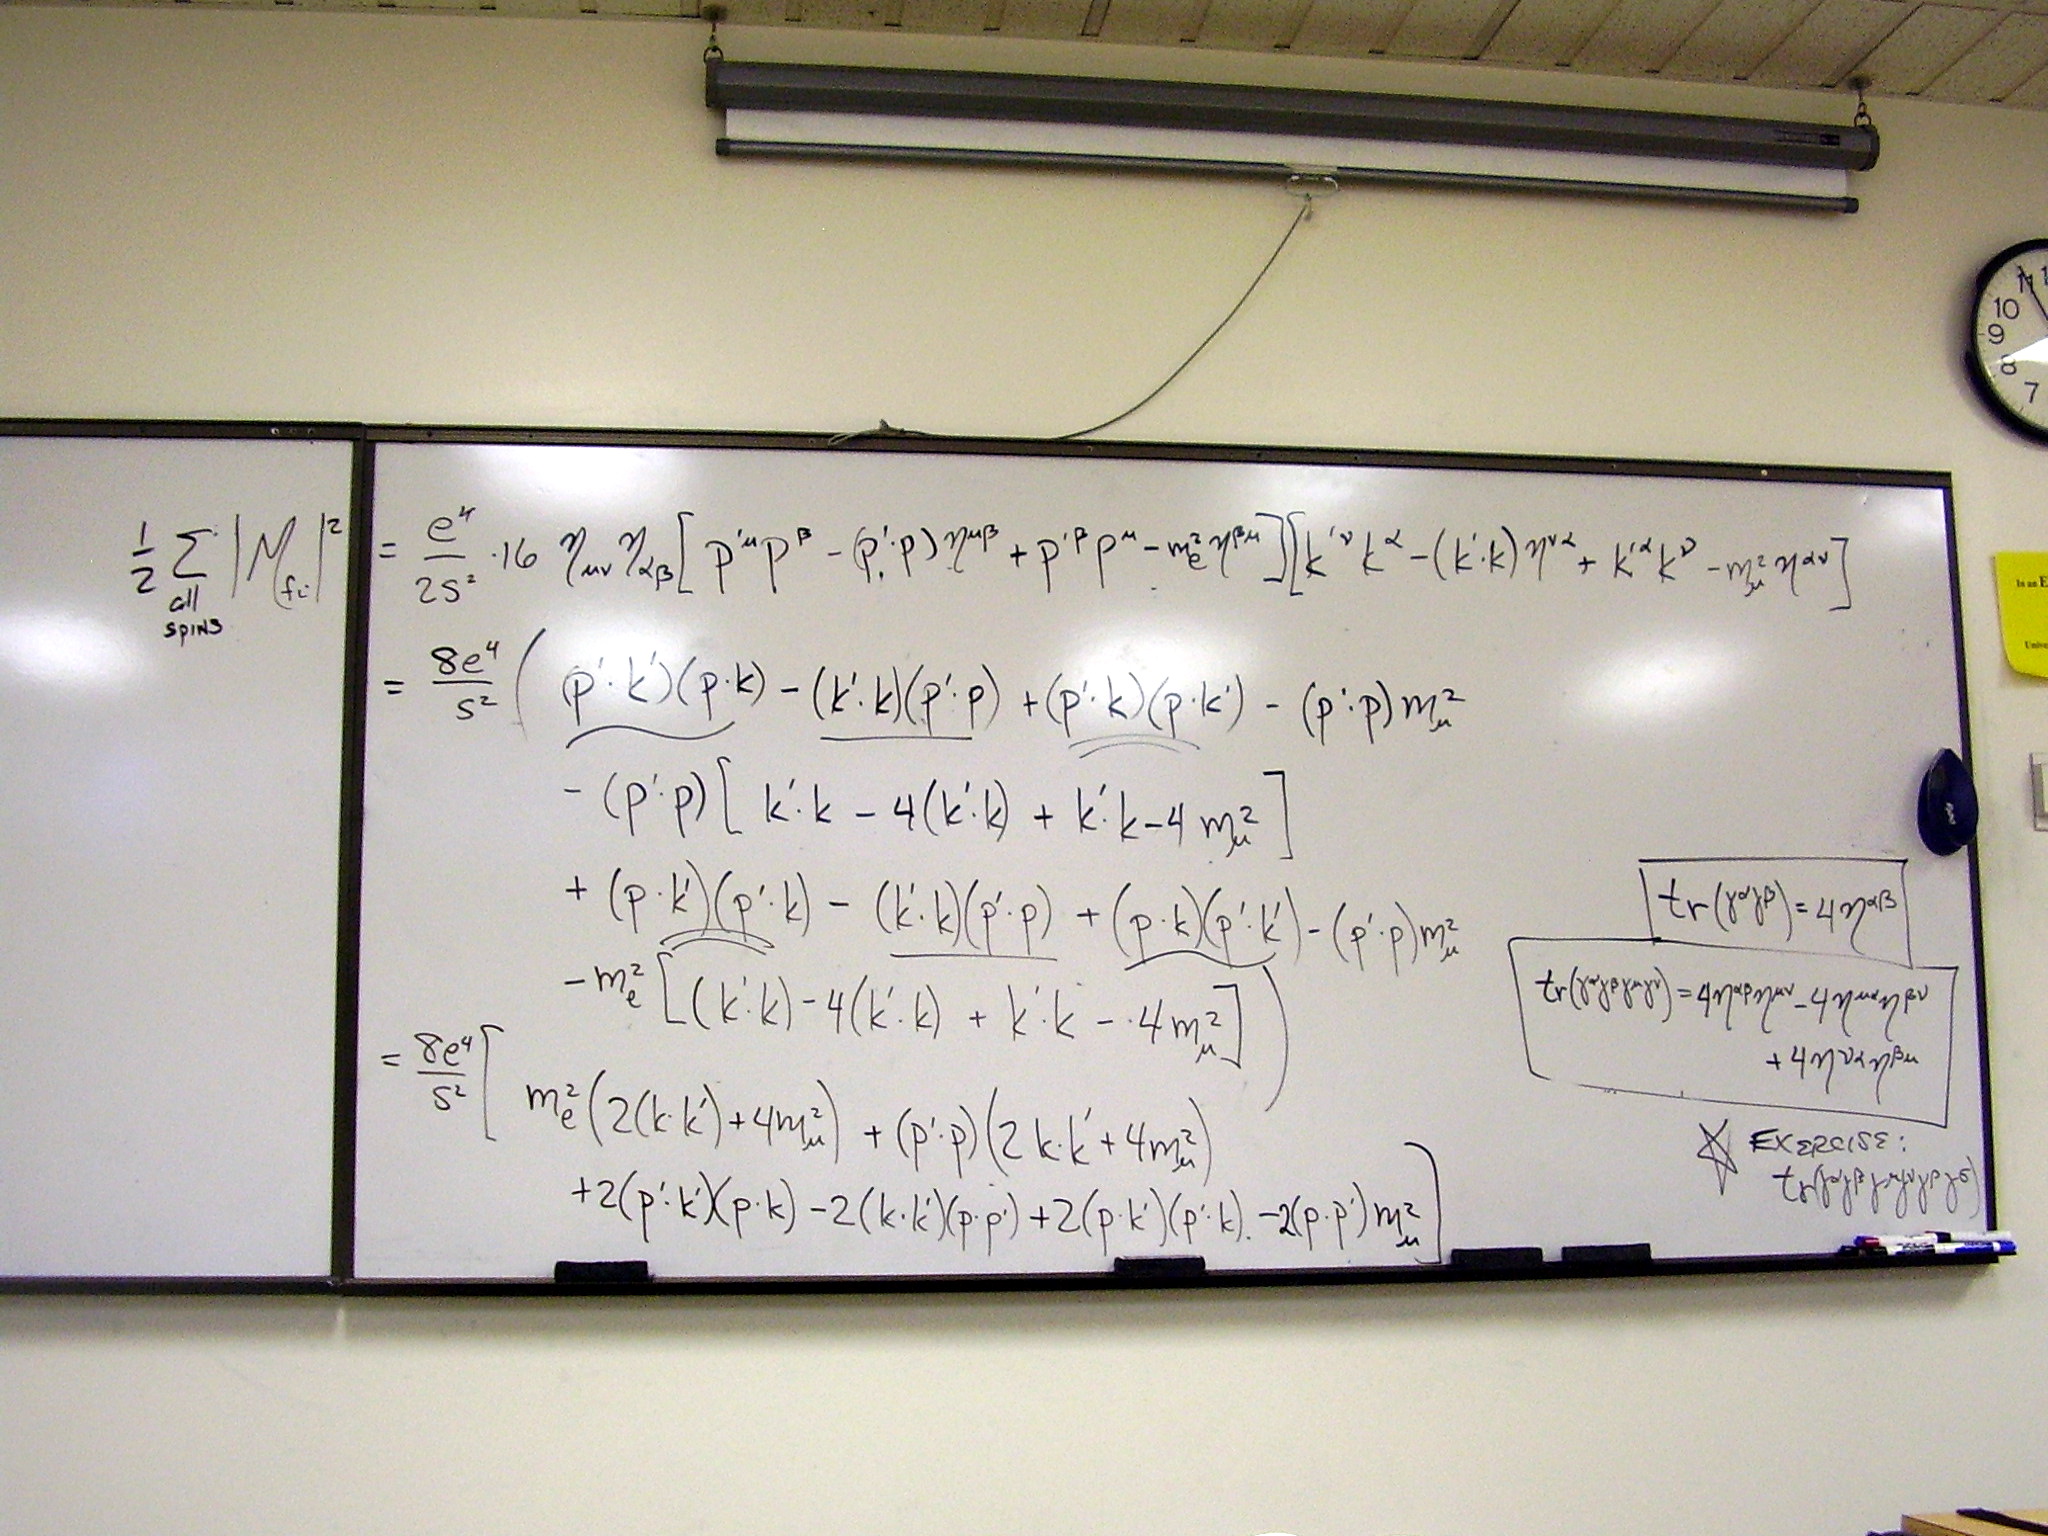 1/2 Σ_{all SPINS} |M_{fi}|² = e⁴/2s² · 16 η_{μν} η_{αβ} [p'^μ p^β − (p'·p) η^{μβ} + p'^β p^μ − m_e² η^{βμ}][k'^ν k^α − (k'·k) η^{να} + k'^α k^ν − m_μ² η^{αν}]
= 8e⁴/s² ( (p'·k')(p·k) − (k'·k)(p'·p) + (p'·k)(p·k') − (p'·p) m_μ²
− (p'·p) [ k'·k − 4(k'·k) + k'·k − 4 m_μ² ]
+ (p·k')(p'·k) − (k'·k)(p'·p) + (p·k)(p'·k') − (p'·p) m_μ²
− m_e² [ (k'·k) − 4(k'·k) + k'·k − 4 m_μ² ] )
= 8e⁴/s² [ m_e² (2(k·k') + 4m_μ²) + (p'·p)(2k·k' + 4m_μ²)
+ 2(p'·k')(p·k) − 2(k·k')(p·p') + 2(p·k')(p'·k) − 2(p·p') m_μ² ]
tr(γ^α γ^β) = 4η^{αβ}
tr(γ^α γ^β γ^μ γ^ν) = 4η^{αβ} η^{μν} − 4η^{μα} η^{βν}
+ 4η^{να} η^{βμ}
☆ EXERCISE:
11
10
9
8
7
In an E
Unive